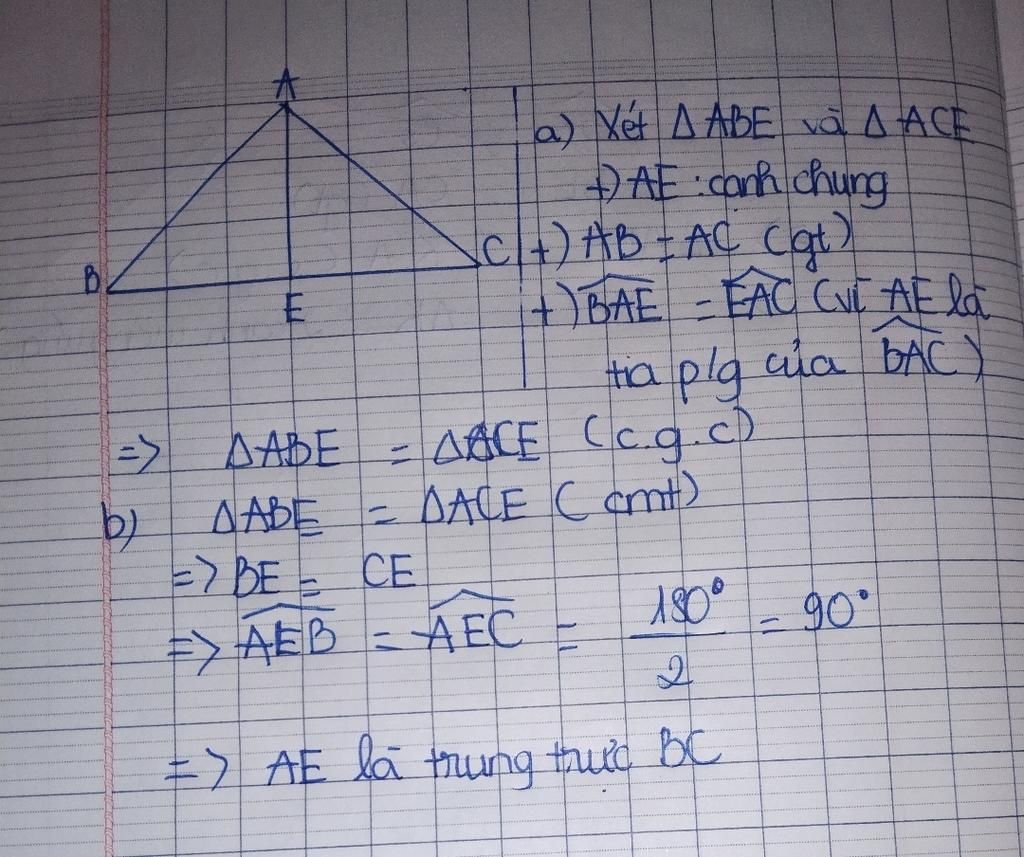 A
B
C
E
a) Xét Δ ABE và Δ ACE
+) AE : cạnh chung
+) AB = AC (gt)
+) \widehat{BAE} = \widehat{EAC} (vì AE là
tia p/g của \widehat{BAC})
=> ΔABE = ΔACE (c.g.c)
b) ΔABE = ΔACE (cmt)
=> BE = CE
=> \widehat{AEB} = \widehat{AEC} = \frac{180°}{2} = 90°
=> AE là trung trực BC